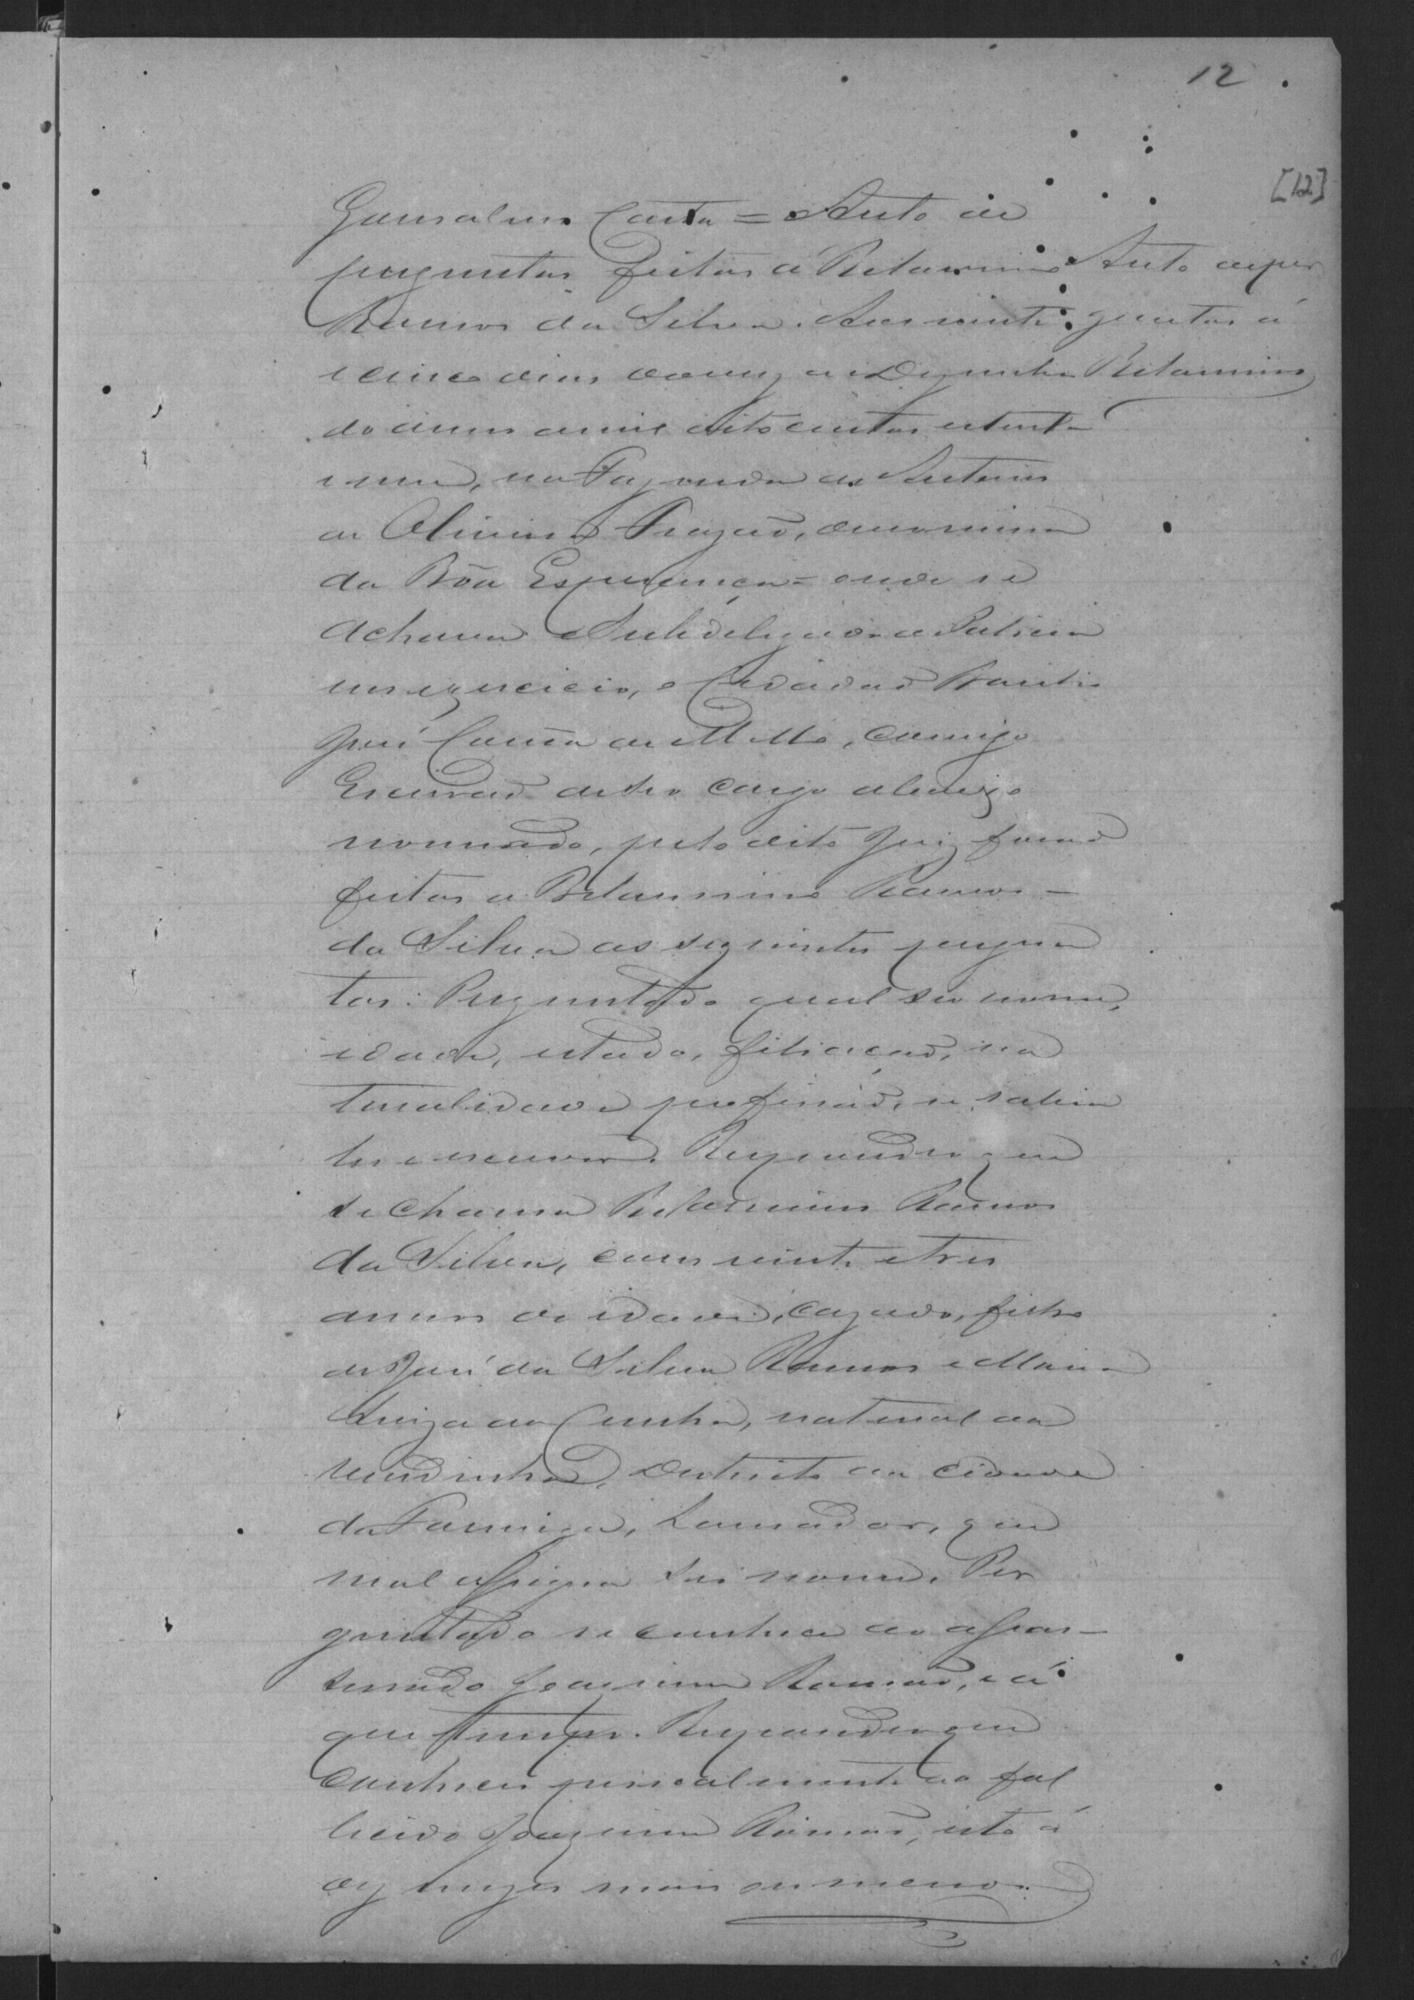 12
[12]
Gonsalves Costa = Auto de
preguntas feitas á Belarmino
Ramos da Silva. Aos vinte
e cinco dias do mez de Dezembro
do anno de mil oito centos e
e um, na Fazenda de Antonio
de Oliveira denomina
da Bôa Esperança = onde se
achava o Subdelegado de Policia
em exercicio, o Cidadão
José Corrêa de Mello, comigo
Escrivão de seo cargo abaixo
nomeado, pelo dito Juiz forão
feitas a Belarmino Ramos
da Silva as seguintes pergun
tas: Perguntado qual seo nome,
idade, estado, filiação, na
turalidade profissão, se sabia
ler e escrever. Respondeo que
se chama Belarmino Ramos
da Silva, com vinte e tres
annos de idade, cazado, filho
de José da Silva Ramos e Maria
Luiza da Cunha, natural da
Districto da cidade
da Formiga, Lavrador, que
mal assigna seo nome. Per
guntado se conhece ao assas
sinado Joaquim Ramão, e á
que tempo. Respondeo que
conheceu pessoalmente ao fal
lecido Joaquim Ramão, isto á
dez mezes mais ou menos.
Auto de per
guntas á
Belarmino